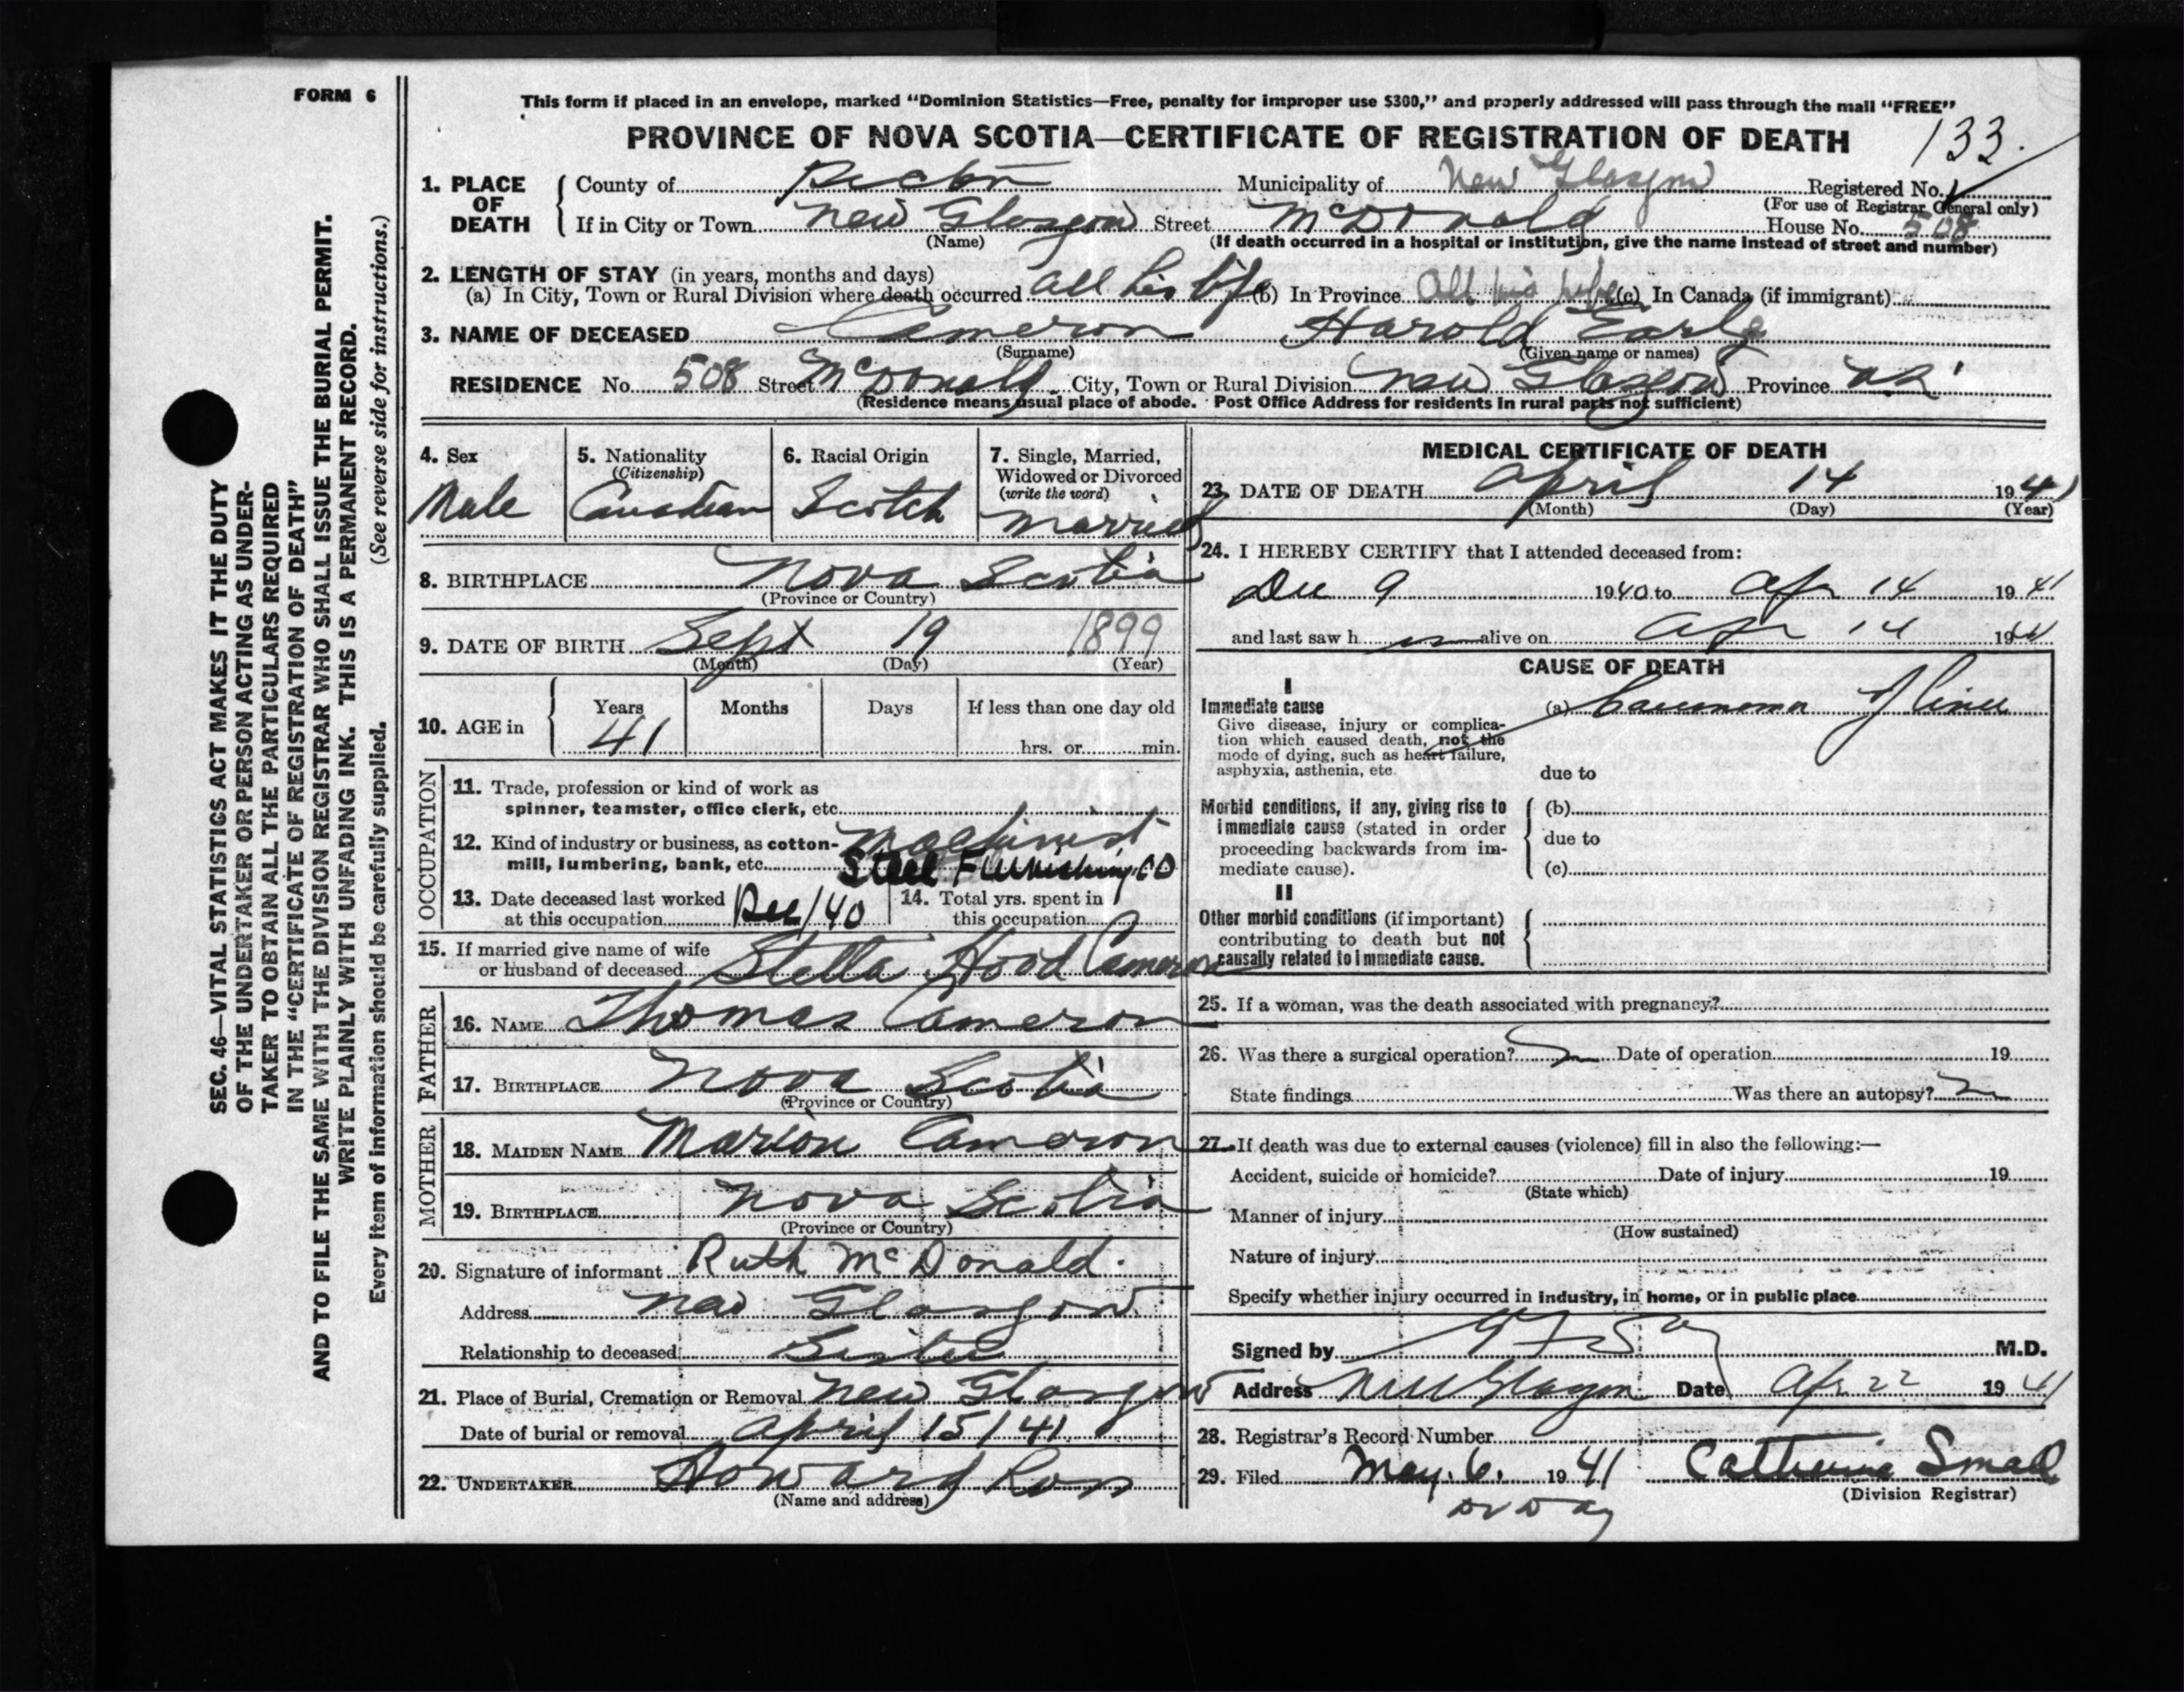 FORM 6
This form if placed in an envelope, marked “Dominion Statistics—Free, penalty for improper use $300,” and properly addressed will pass through the mail “FREE”
PROVINCE OF NOVA SCOTIA—CERTIFICATE OF REGISTRATION OF DEATH
133.
1. PLACE OF DEATH { County of Pictou Municipality of New Glasgow Registered No.
(For use of Registrar General only)
If in City or Town New Glasgow Street McDonald House No. 508
(Name) (If death occurred in a hospital or institution, give the name instead of street and number)
2. LENGTH OF STAY (in years, months and days)
(a) In City, Town or Rural Division where death occurred all his life (b) In Province All his life (c) In Canada (if immigrant)
3. NAME OF DECEASED Cameron Harold Earle
(Surname) (Given name or names)
RESIDENCE No. 508 Street McDonald City, Town or Rural Division New Glasgow Province NS
(Residence means usual place of abode. Post Office Address for residents in rural parts not sufficient)
4. Sex
Male
5. Nationality
(Citizenship)
Canadian
6. Racial Origin
Scotch
7. Single, Married,
Widowed or Divorced
(write the word)
Married
8. BIRTHPLACE Nova Scotia
(Province or Country)
9. DATE OF BIRTH Sept 19 1899
(Month) (Day) (Year)
10. AGE in { Years Months Days If less than one day old
41 hrs. or min.
OCCUPATION
11. Trade, profession or kind of work as
spinner, teamster, office clerk, etc.
12. Kind of industry or business, as cotton- Machinist
mill, lumbering, bank, etc. Steel Furnishing CO
13. Date deceased last worked
at this occupation Dec/40
14. Total yrs. spent in
this occupation
15. If married give name of wife
or husband of deceased Stella Hood Cameron
FATHER
16. NAME Thomas Cameron
17. BIRTHPLACE Nova Scotia
(Province or Country)
MOTHER
18. MAIDEN NAME Marion Cameron
19. BIRTHPLACE Nova Scotia
(Province or Country)
20. Signature of informant Ruth McDonald.
Address New Glasgow
Relationship to deceased Sister
21. Place of Burial, Cremation or Removal New Glasgow
Date of burial or removal April 15/41
22. UNDERTAKER Howard Ross
(Name and address)
MEDICAL CERTIFICATE OF DEATH
23. DATE OF DEATH April 14 1941
(Month) (Day) (Year)
24. I HEREBY CERTIFY that I attended deceased from:
Dec 9 1940 to Apr 14 1941
and last saw h im alive on Apr 14 1941
CAUSE OF DEATH
I
Immediate cause
Give disease, injury or complica-
tion which caused death, not the
mode of dying, such as heart failure,
asphyxia, asthenia, etc.
(a) Carcinoma of liver
due to
Morbid conditions, if any, giving rise to
immediate cause (stated in order
proceeding backwards from im-
mediate cause).
(b)
due to
(c)
II
Other morbid conditions (if important)
contributing to death but not
causally related to immediate cause.
25. If a woman, was the death associated with pregnancy?
26. Was there a surgical operation? Date of operation 19
State findings Was there an autopsy?
27. If death was due to external causes (violence) fill in also the following:—
Accident, suicide or homicide? Date of injury 19
(State which)
Manner of injury
(How sustained)
Nature of injury
Specify whether injury occurred in industry, in home, or in public place
Signed by M.D.
Address New Glasgow Date Apr 22 1941
28. Registrar's Record Number
29. Filed May. 6. 1941 Catherine Small
(Division Registrar)
Dr Day
SEC. 46—VITAL STATISTICS ACT MAKES IT THE DUTY
OF THE UNDERTAKER OR PERSON ACTING AS UNDER-
TAKER TO OBTAIN ALL THE PARTICULARS REQUIRED
IN THE “CERTIFICATE OF REGISTRATION OF DEATH”
AND TO FILE THE SAME WITH THE DIVISION REGISTRAR WHO SHALL ISSUE THE BURIAL PERMIT.
WRITE PLAINLY WITH UNFADING INK. THIS IS A PERMANENT RECORD.
Every item of information should be carefully supplied. (See reverse side for instructions.)